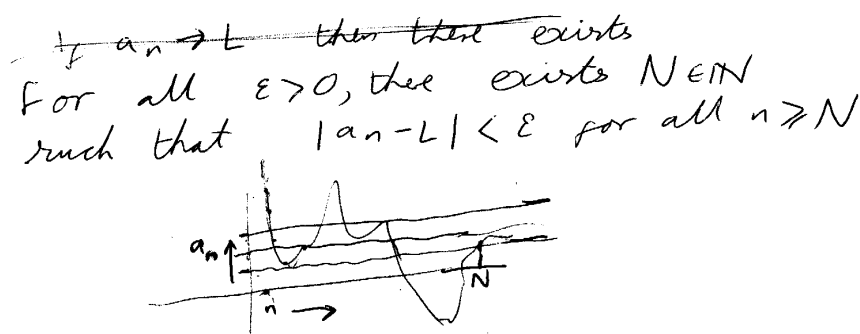 If aₙ → L then there exists
For all ε>0, thee exists N∈ℕ
such that |aₙ-L| < ε for all n⩾N
aₙ
N
n